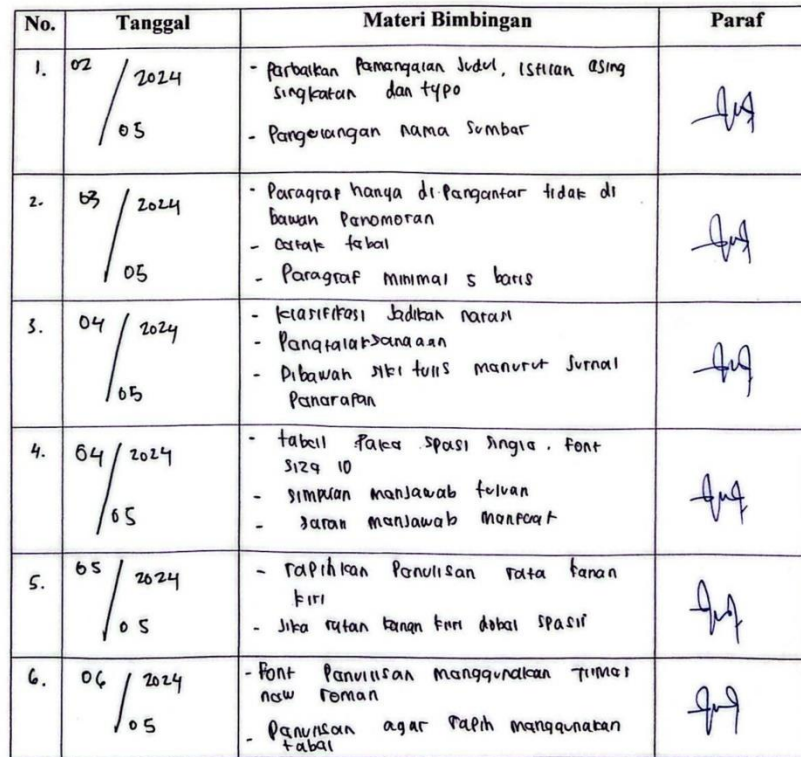 No. Tanggal Materi Bimbingan Paraf
1. 02 / 05 2024
- Perbaikan Pemenggalan Judul, istilah asing
singkatan dan typo
- Pengulangan nama Sumber
2. 03 / 05 2024
- Paragraf hanya di Pengantar tidak di
bawah Penomoran
- cetak tebal
- Paragraf minimal 5 baris
3. 04 / 05 2024
- klasifikasi Jadikan narasi
- Penatalaksanaan
- Dibawah siki tulis menurut Jurnal
Penerapan
4. 04 / 05 2024
- tabell Pakai spasi single. Font
size 10
- simpulan menjawab tujuan
- saran menjawab manfaat
5. 05 / 05 2024
- rapihkan Penulisan rata kanan
kiri
- Jika rutan kanan kiri dobel spasii
6. 06 / 05 2024
- Font Penulisan menggunakan Times
new roman
- Penulisan agar rapih menggunakan
tabel